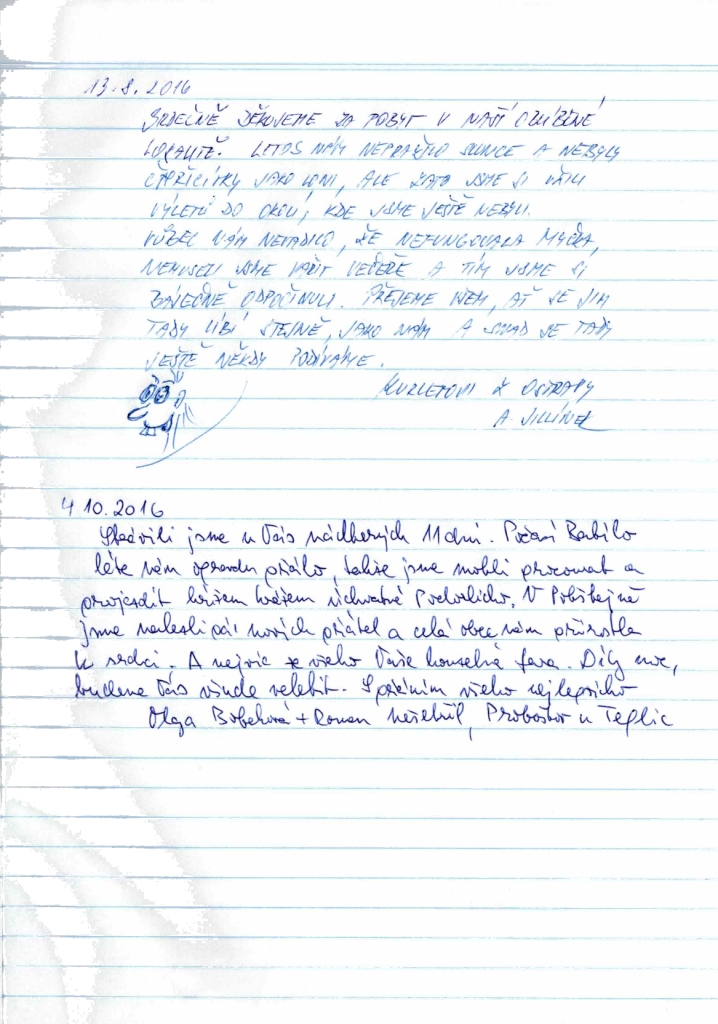 13.8.2016
SRDEČNĚ DĚKUJEME ZA POBYT V NAŠÍ OBLÍBENÉ
LOKALITĚ. LETOS NÁM NEPRAŽILO SLUNCE A NEBYLY
ČTYŘICÍTKY JAKO LONI, ALE ZATO JSME SI UŽILI
VÝLETŮ DO OKOLÍ, KDE JSME JEŠTĚ NEBYLI.
VŮBEC NÁM NEVADILO, ŽE NEFUNGOVALA MYČKA,
NEMUSELI JSME VAŘIT VEČEŘE A TÍM JSME SI
BÁJEČNĚ ODPOČINULI. PŘEJEME VŠEM, AŤ SE JIM
TADY LÍBÍ STEJNĚ, JAKO NÁM A SNAD SE TADY
JEŠTĚ NĚKDY PODÍVÁME.
Z OSTRAVY
A
4 10.2016
Strávili jsme u Vás nádherných 11 dní. Počasí Babího
léta nám opravdu přálo, takže jsme mohli procourat a
projezdit křížem krážem úchvatné Podorlicko. V
jsme nalezli pár nových přátel a celá obec nám přirostla
k srdci. A nejvíc ze všeho Vaše kouzelná fara. Díky moc,
budeme Vás všude velebit. S přáním všeho nejlepšího
Olga + Roman Proboštov u Teplic